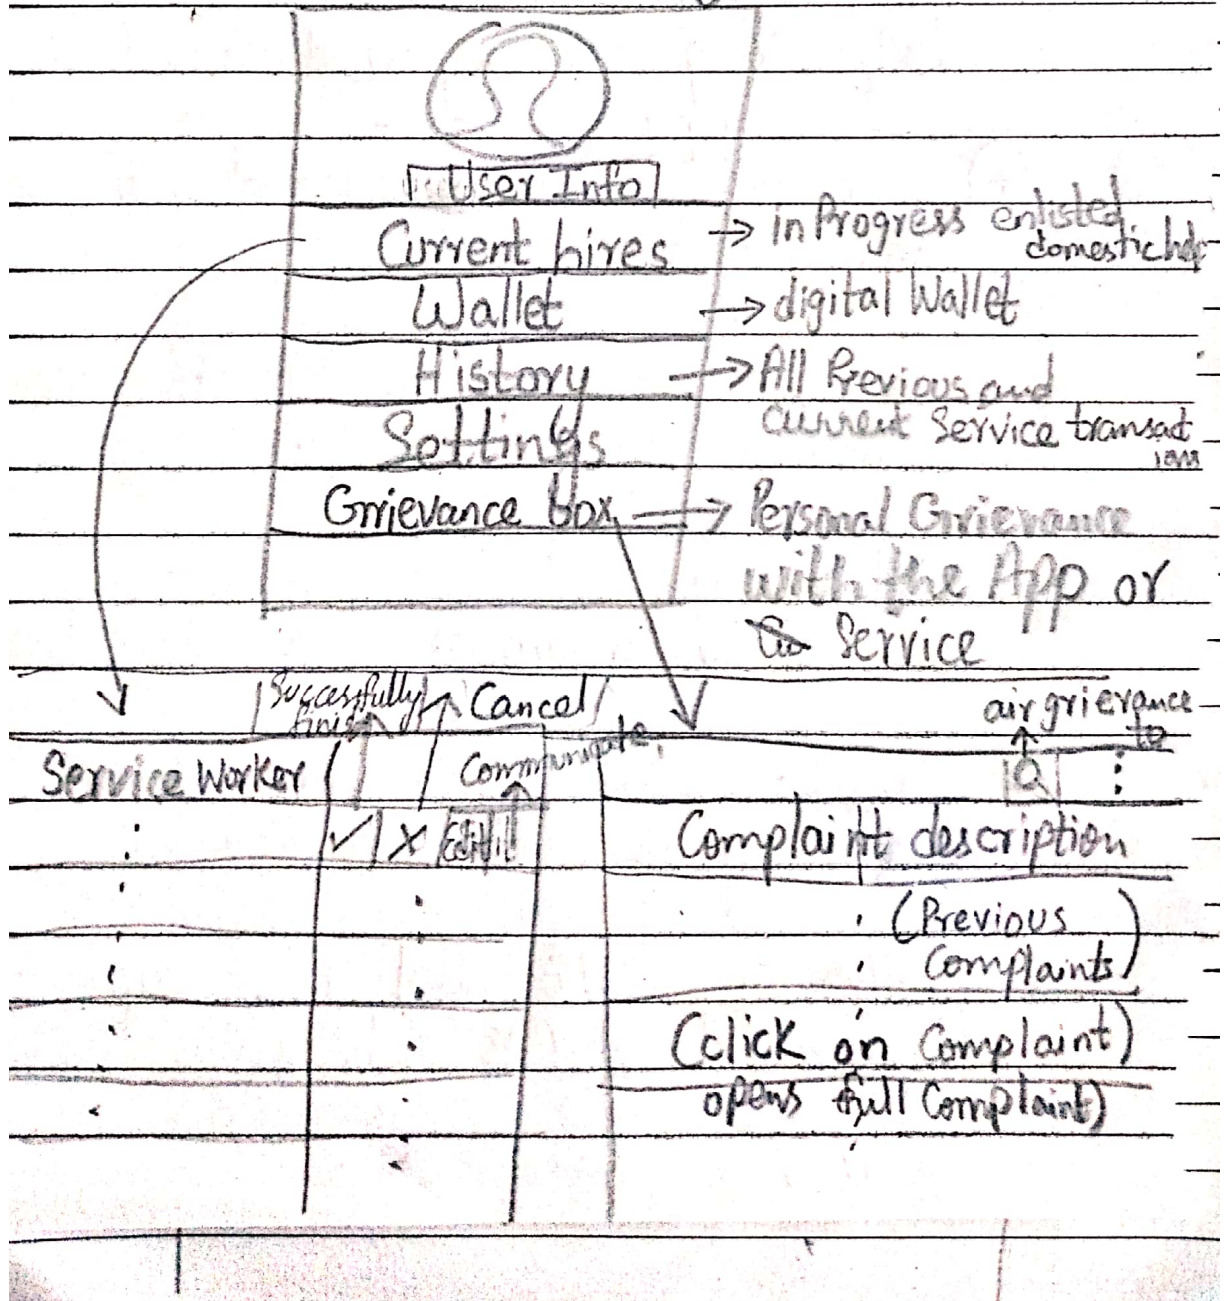 User Info
Current hires → in Progress enlisted
domestic help
Wallet → digital Wallet
History → All Previous and
current Service transact
ions
Settings
Grievance box → Personal Grievance
with the App or
Service
Successfully
finish
Cancel
air grievance
to
Service Worker
Communicate
✓ X Edit
Complaint description
(Previous
Complaints)
(click on Complaint)
opens full Complaint)